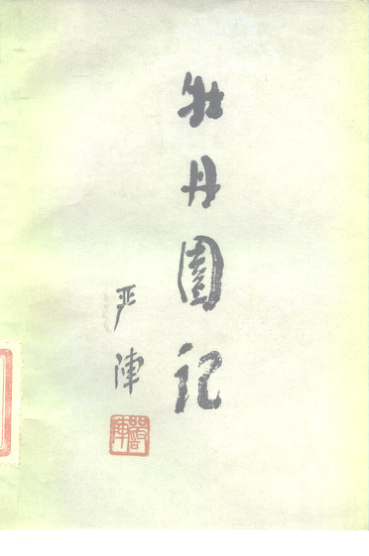 牡丹園记
严陣